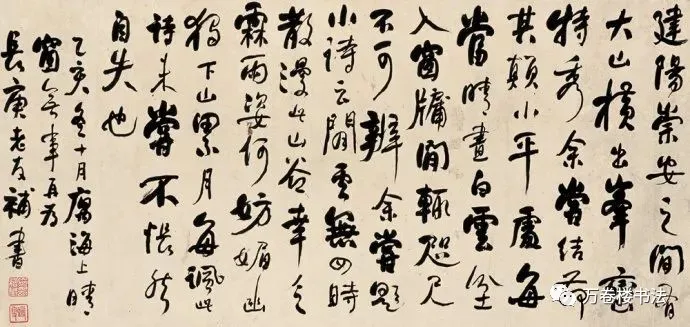 建陽崇安之間有
大山橫出峯巒
特秀余嘗結茆
其顛小平處每
當晴晝白雲坌
入窗牖間輒咫尺
不可辨余嘗題
小詩云閒雲無四時
散漫此山谷幸乏
霖雨姿何妨媚幽
獨下山累月每諷此
詩未嘗不悵然
自失也
乙亥冬十月寓海上晴
窗無事再為
長庚老友補書
万卷楼书法